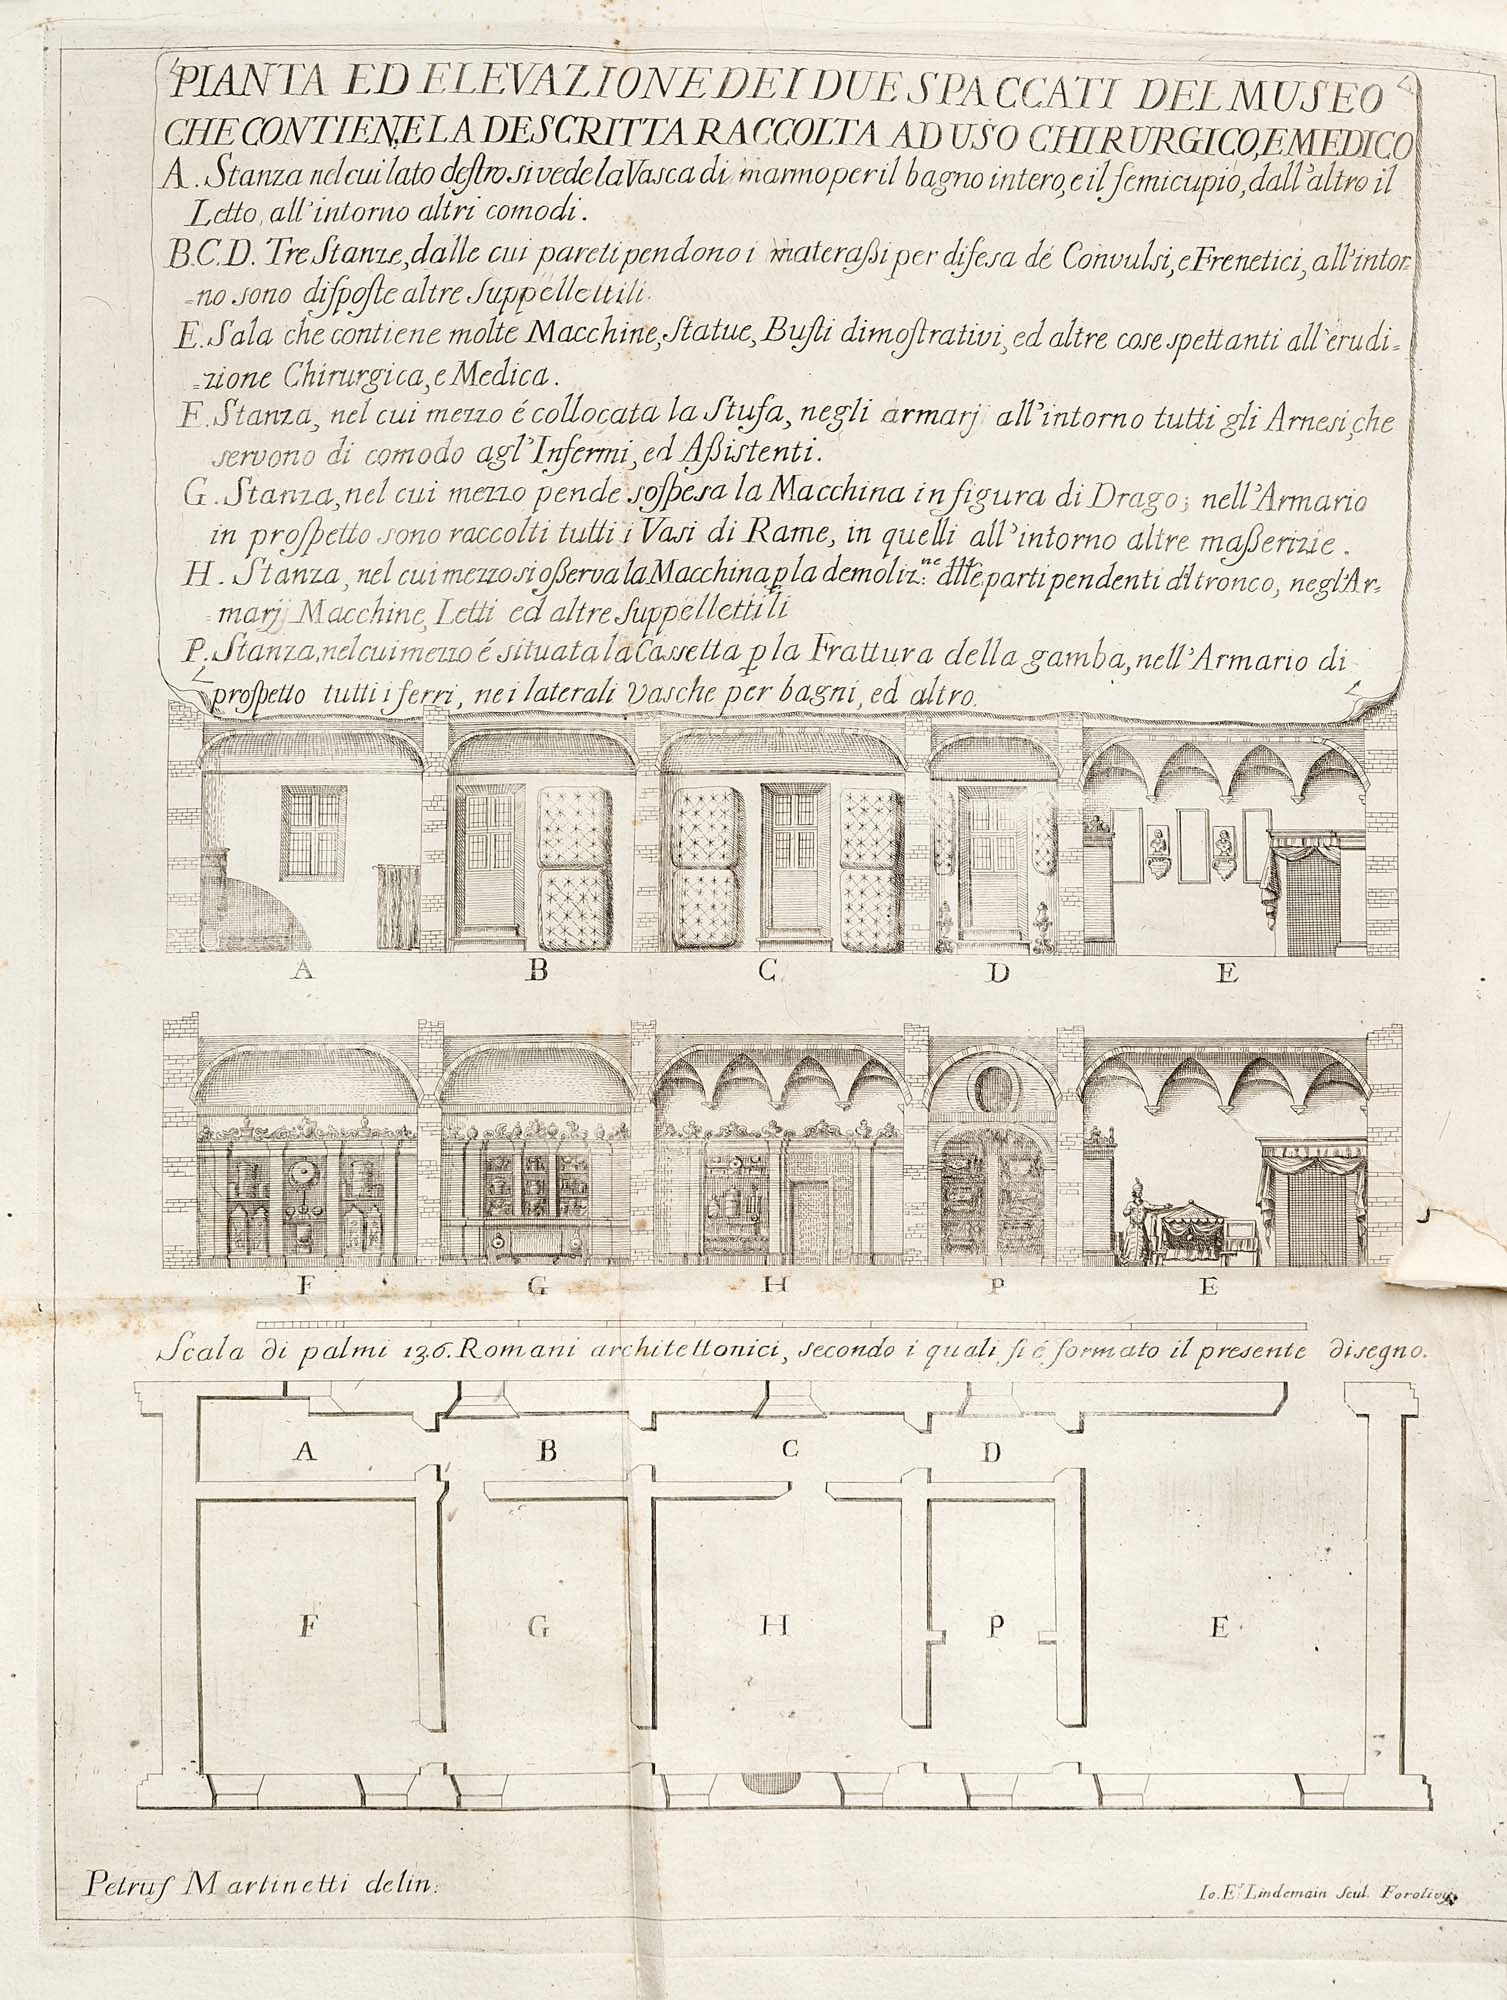 PIANTA ED ELEVAZIONE DEI DUE SPACCATI DEL MUSEO
CHE CONTIENE LA DESCRITTA RACCOLTA AD USO CHIRURGICO, E MEDICO
A. Stanza nel cui lato deſtro si vede la Vasca di marmo per il bagno intero, e il ſemicupio, dall'altro il
Letto, all'intorno altri comodi.
B.C.D. Tre Stanze, dalle cui pareti pendono i materaßi per difesa dé Convulsi, e Frenetici, all'intor=
=no sono diſpoſte altre Suppellettili.
E. Sala che contiene molte Macchine, Statue, Buſti dimoſtrativi, ed altre cose spettanti all'erudi=
=zione Chirurgica, e Medica.
F. Stanza, nel cui mezzo é collocata la Stufa, negli armarj all'intorno tutti gli Arnesi, che
servono di comodo agl'Infermi, ed Aßistenti.
G. Stanza, nel cui mezzo pende soſpesa la Macchina in figura di Drago; nell'Armario
in proſpetto sono raccolti tutti i Vasi di Rame, in quelli all'intorno altre maßerizie.
H. Stanza, nel cui mezzo si oßerva la Macchina p la demoliz:ne dlle parti pendenti dl tronco, negl'Ar=
=marj Macchine, Letti ed altre Suppellettili
P. Stanza, nel cui mezzo é situata la Cassetta p la Frattura della gamba, nell'Armario di
proſpetto tutti i ferri, ne i laterali Vasche per bagni, ed altro.
A B C D E
F G H P E
Scala di palmi 136. Romani architettonici, secondo i quali ſi é formato il presente disegno.
A B C D
F G H P E
Petruſ Martinetti delin:
Io. E.s Lindemain Scul. Forolivij